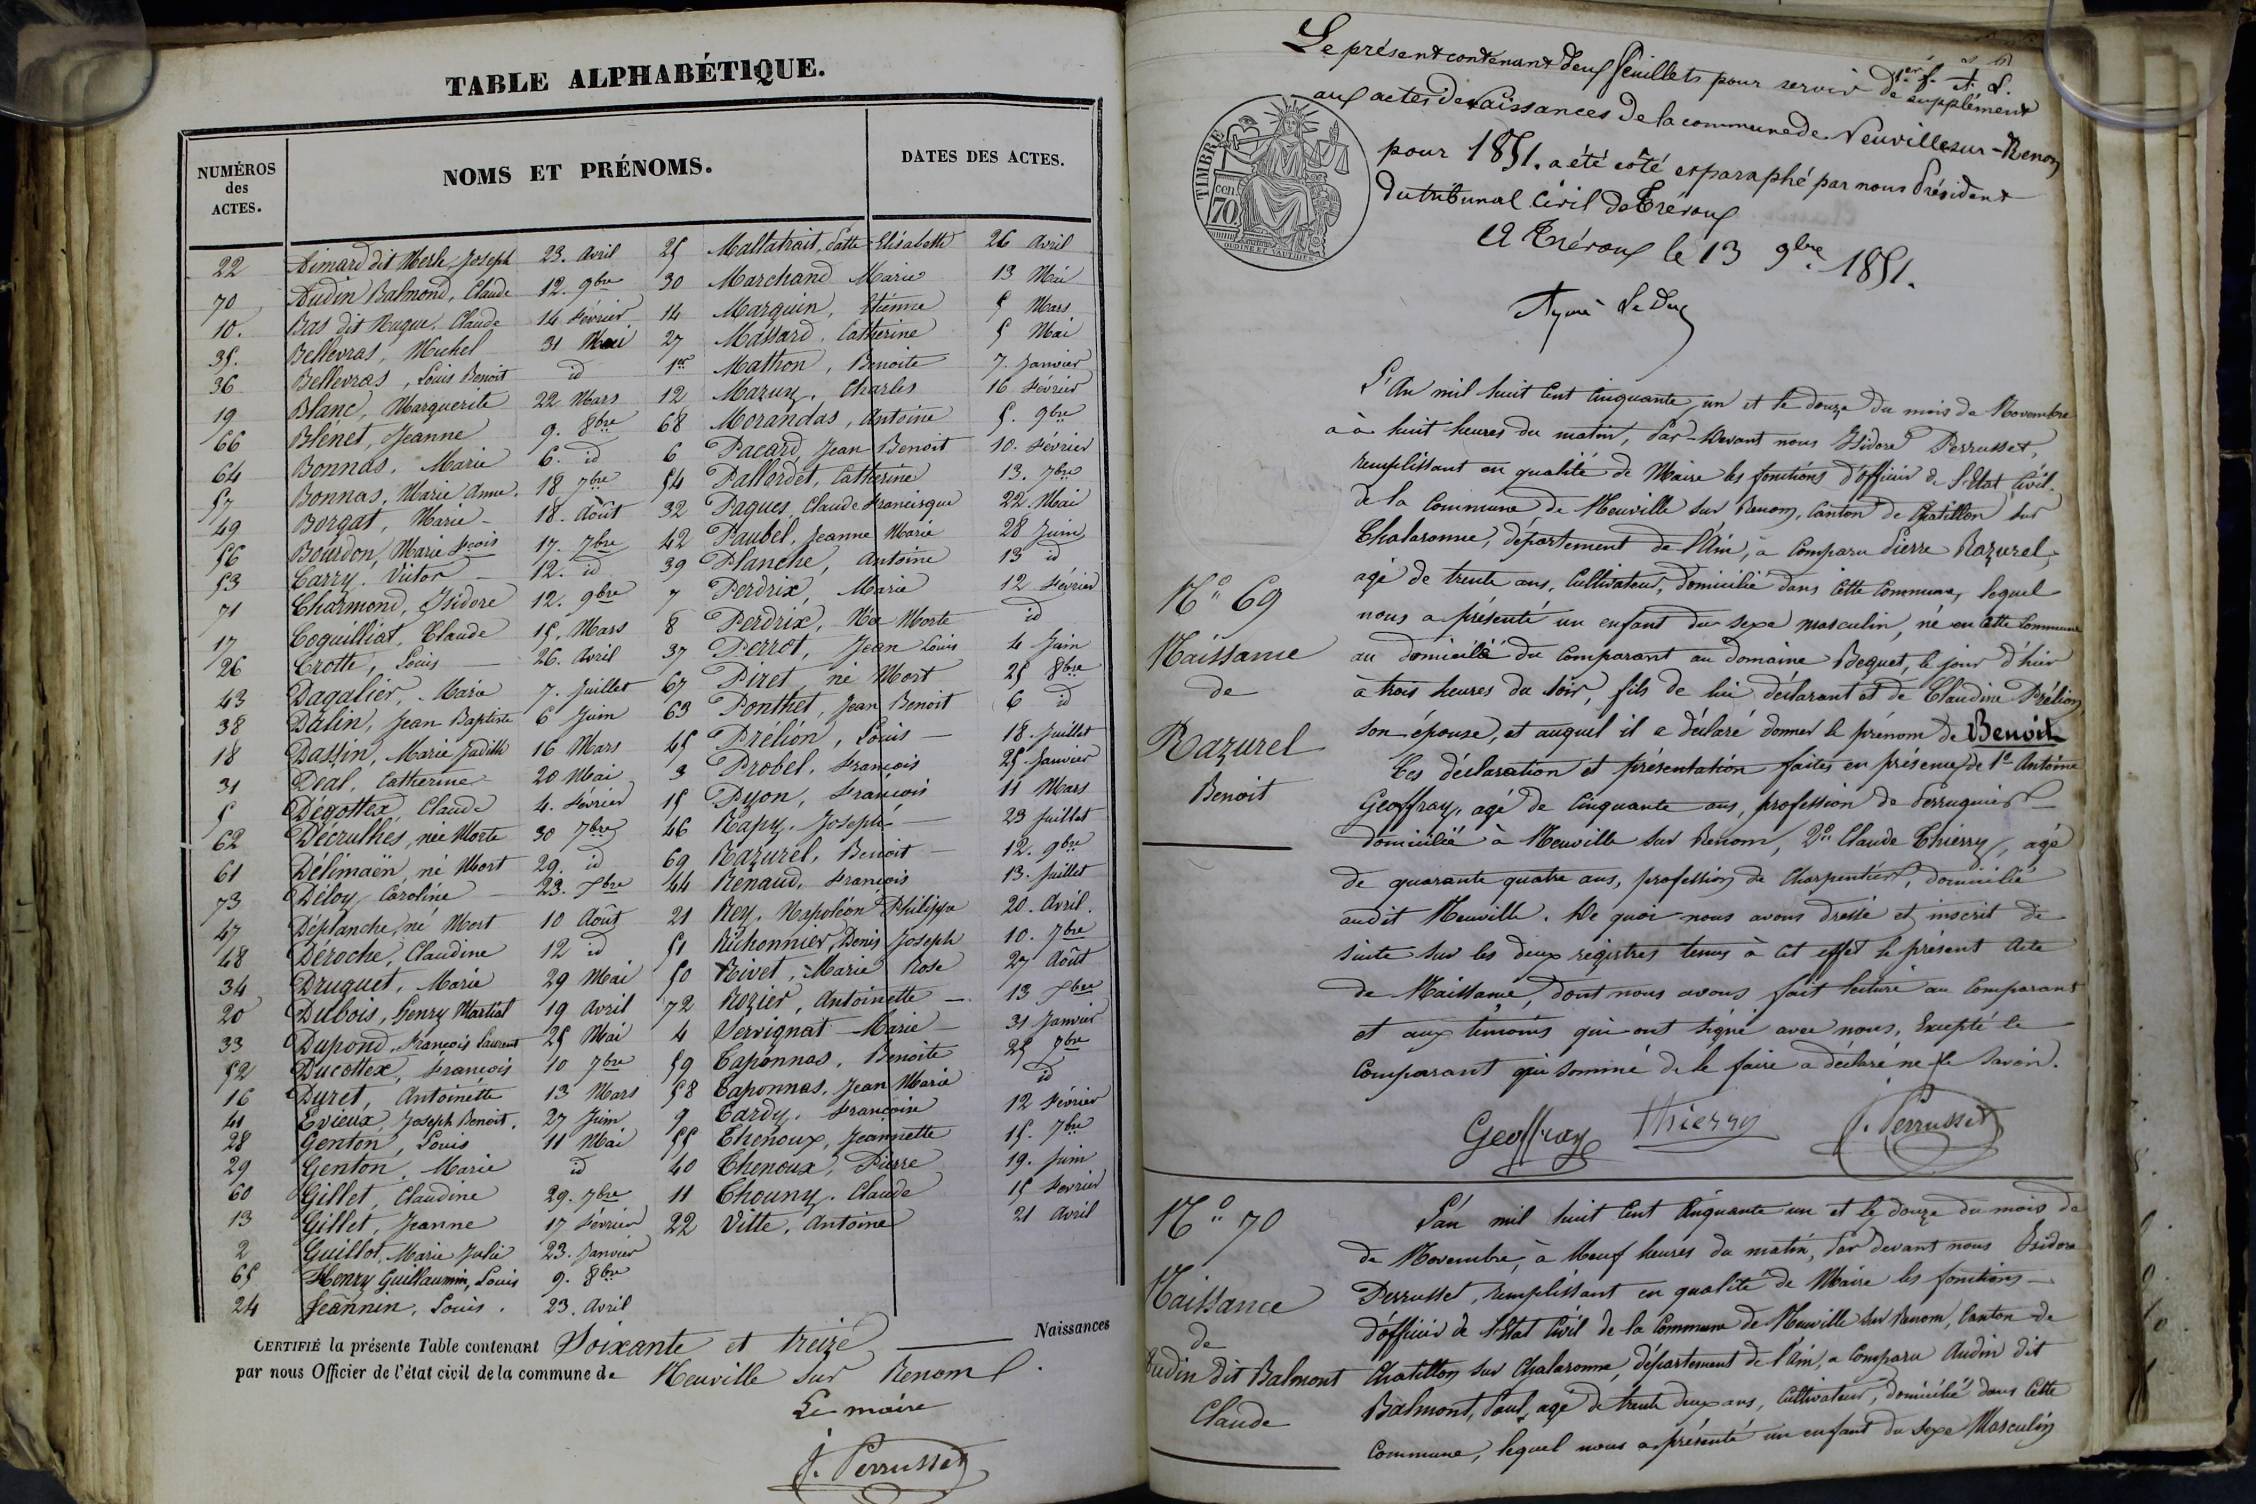 TABLE ALPHABÉTIQUE.
NUMÉROS des ACTES.
NOMS ET PRÉNOMS.
DATES DES ACTES.
22 Aimard dit Merle, Joseph 23. Avril
70 Audin Balmond, Claude 12. 9bre
10. Bas dit Nugue. Claude 14 Février
35. Bellevras, Michel 31 Mai
36 Bellevras, Louis Benoit id
19 Blanc, Marguerite 22 Mars
66 Blénet, Jeanne 9. 8bre
64 Bonnas. Marie 6. id
57 Bonnas. Marie Anne. 18 7bre
49 Borgat, Marie 18. Août
56 Bourdon, Marie Fcois 17. 7bre
53 Carry. Victor 12. id
71 Charmond, Isidore 12. 9bre
17 Coquilliat, Claude 15. Mars
26 Crotte, Louis 26. Avril
43 Dagalier, Marie 7. Juillet
38 Dalin, Jean Baptiste 6 Juin
18 Dassin, Marie Judith 16 Mars
31 Déal, Catherine 20 Mai
5 Dégottex, Claude 4. Février
62 Décruthes, née Morte 30 7bre
61 Délimaën, né Mort 29. id
73 Déloy, Caroline 23. Xbre
47 Déplanche, né Mort 10 Août
48 Déroche, Claudine 12 id
34 Druguet, Marie 29 Mai
20 Dubois, Henry Martial 19 Avril
33 Dupond, François Laurent 25 Mai
52 Ducottex, François 10 7bre
16 Duret, Antoinette 13 Mars
41 Evieux, Joseph Benoit. 27 Juin
28 Genton, Louis 11 Mai
29 Genton, Marie id
60 Gillet, Claudine 29. 7bre
13 Gillet, Jeanne 17 Février
2 Guillot, Marie Julie 23. Janvier
65 Henry Guillaumin, Louis 9. 8bre
24 Jeannin, Louis. 23. Avril
25 Maltatrait, Elisabeth 26 Avril
30 Marchand Marie 13 Mai
14 Marguin, Etienne 5 Mars
27 Massard, Catherine 5 Mai
1er Mathon, Benoite 7. Janvier
12 Mazuy, Charles 16 Février
68 Morandas, Antoine 5. 9bre
6 Pacard, Jean Benoit 10. Février
54 Pallordet, Catherine 13. 7bre
32 Paques, Claude Francisque 22. Mai
42 Paubel, Jeanne Marie 28 Juin
39 Planche, Antoine 13 id
7 Perdrix, Marie 12 Février
8 Perdrix, Née Morte id
37 Perret, Jean Louis 4 Juin
67 Piret, né Mort 25 8bre
63 Ponthet, Jean Benoit 6 id
45 Prélion, Louis 18. Juillet
3 Probel, François 25. Janvier
15 Pyon, François 11 Mars
46 Rapy, Joseph 23 Juillet
69 Razurel, Benoit 12. 9bre
44 Renaud, François 13. Juillet
21 Rey, Napoléon Philippe 20. Avril.
51 Richonnier, Denis Joseph 10. 7bre
50 Rivet, Marie Rose 27 Août
72 Rozier, Antoinette 13 Xbre
4 Servignat Marie 31 Janvier
59 Taponnas, Benoite 25 7bre
58 Taponnas, Jean Marie id
9 Tardy, Françoise 12 Février
55 Thenoux, Jeannette 15. 7bre
40 Thenoux, Pierre 19. Juin
11 Thouny, Claude 15 Février
22 Vitte, Antoine 21 Avril
CERTIFIÉ la présente Table contenant Soixante et treize Naissances
par nous Officier de l'état civil de la commune de Neuville sur Renom.
Le maire
J. Perrusset
1er f.
Le présent contenant deux feuillets pour servir de supplément
aux actes de Naissances de la commune de Neuville sur-Renom
pour 1851. a été coté et paraphé par nous Président
du tribunal civil de Trévoux
A Trévoux le 13 9bre 1851.
TIMBRE
70 cen
OUDINÉ ET VAUTHIER
L'An mil huit cent cinquante un et le douze du mois de Novembre
à à huit heures du matin, Par-Devant nous Isidore Perrusset,
remplissant en qualité de Maire les fonctions d'officier de l'Etat Civil
de la Commune de Neuville sur Renom, Canton de Chatillon sur
Chalaronne, département de l'Ain, a Comparu Pierre Razurel,
agé de trente ans, Cultivateur, domicilié dans cette Commune, lequel
nous a présenté un enfant du sexe masculin, né en cette Commune
au domicile du Comparant au domaine Bequet, le jour d'hier
à trois heures du soir, fils de lui déclarant et de Claudine Prélion,
son épouse, et auquel il a déclaré donner le prénom de Benoit
Ces déclaration et présentation faites en présence de 1° Antoine
Geoffray, agé de Cinquante ans, profession de Perruquier
domicilié à Neuville sur Renom, 2° Claude Thierry, agé
de quarante quatre ans, profession de Charpentier, domicilié
audit Neuville. De quoi nous avons dressé et inscrit de
suite sur les deux registres tenus à cet effet le présent Acte
de Naissance, dont nous avons fait lecture au Comparant
et aux témoins qui ont signé avec nous, Excepté le
Comparant qui sommé de le faire a déclaré ne le savoir.
N° 69
Naissance
de
Razurel
Benoit
Geoffray Thierry J. Perrusset
N° 70
Naissance
de
Audin dit Balmont
Claude
L'an mil huit Cent Cinquante un et le douze du mois de
de Novembre, à Neuf heures du matin, Par devant nous Isidore
Perrusset, remplissant en qualité de Maire les fonctions
d'officier de l'Etat Civil de la Commune de Neuville sur Renom, Canton de
Chatillon sur Chalaronne, département de l'Ain, a Comparu Audin dit
Balmont, Paul, agé de trente deux ans, Cultivateur, domicilié dans Cette
Commune, lequel nous a présenté un enfant du sexe Masculin